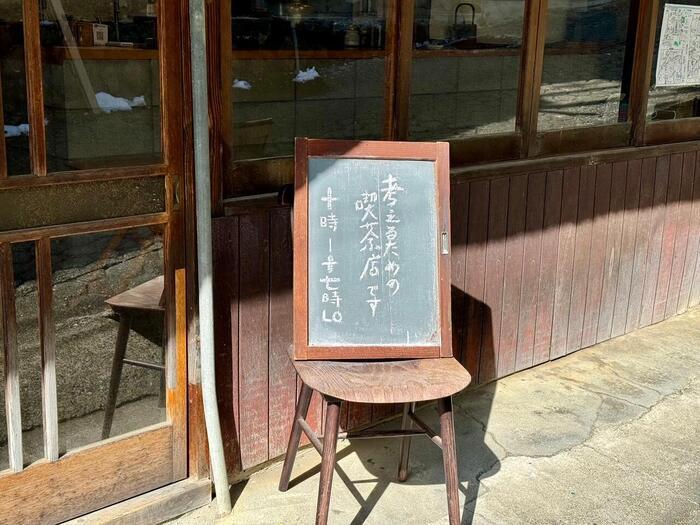 考えるための
喫茶店です
十時ー十七時LO